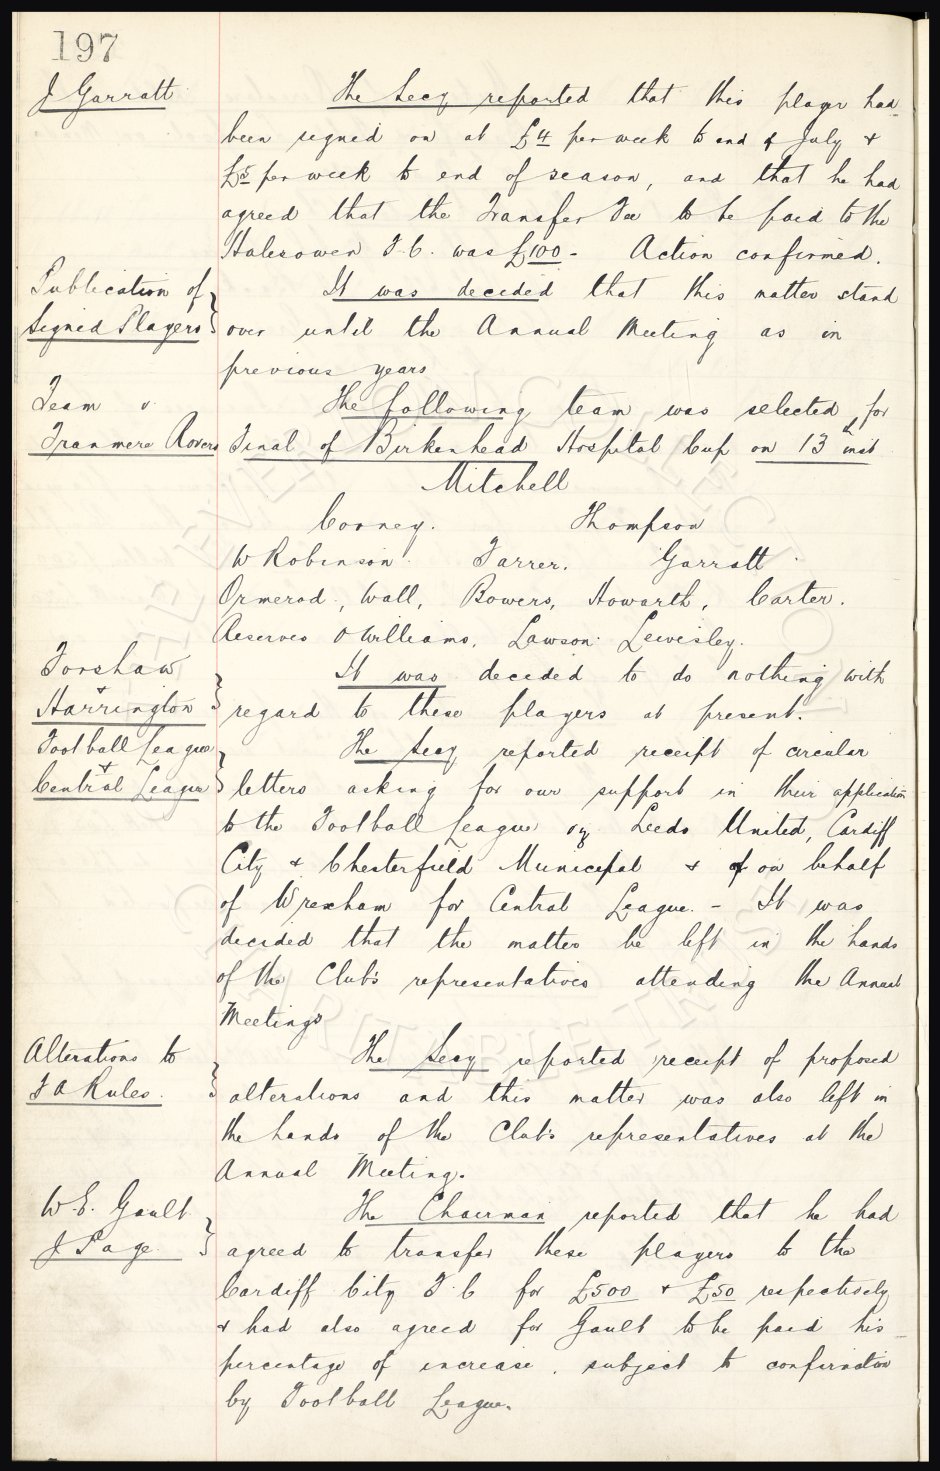 197
J Garratt
The Secy reported that this player had
been signed on at £4 per week to end of July &
£5 per week to end of season, and that he had
agreed that the Transfer Fee to be paid to the
Halesowen F.C. was £100 - Action confirmed.
Publication of
Signed Players
It was decided that this matter stand
over until the Annual Meeting as in
previous years
Team v
Tranmere Rovers
The following team was selected for
Final of Birkenhead Hospital Cup on 13th inst
Mitchell
Cooney. Thompson
W Robinson. Farrer. Garratt.
Ormerod, Wall, Bowers, Howarth, Carter.
Reserves O Williams, Lawson.
Forshaw
&
Harrington
It was decided to do nothing with
regard to these players at present.
Football League
&
Central League
The Secy reported receipt of circular
letters asking for our support in their application
to the Football League by Leeds United, Cardiff
City & Chesterfield Municipal & of on behalf
of Wrexham for Central League. - It was
decided that the matter be left in the hands
of the Club's representatives attending the Annual
Meetings
Alterations to
F A Rules.
The Secy reported receipt of proposed
alterations and this matter was also left in
the hands of the Club's representatives at the
Annual Meeting.
W.E. Gault
J Page.
The Chairman reported that he had
agreed to transfer these players to the
Cardiff City F.C for £500 & £50 respectively
& had also agreed for Gault to be paid his
percentage of increase, subject to confirmation
by Football League.